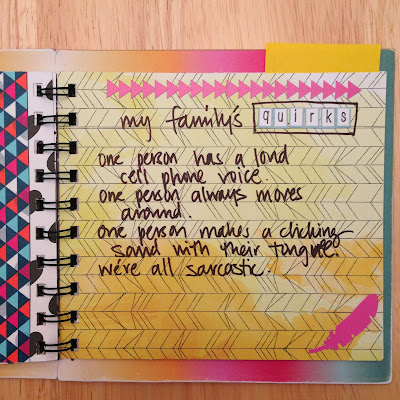 my family's quirks
one person has a loud
cell phone voice.
one person always moves
around.
one person makes a clicking
sound with their tongue.
we're all sarcastic.